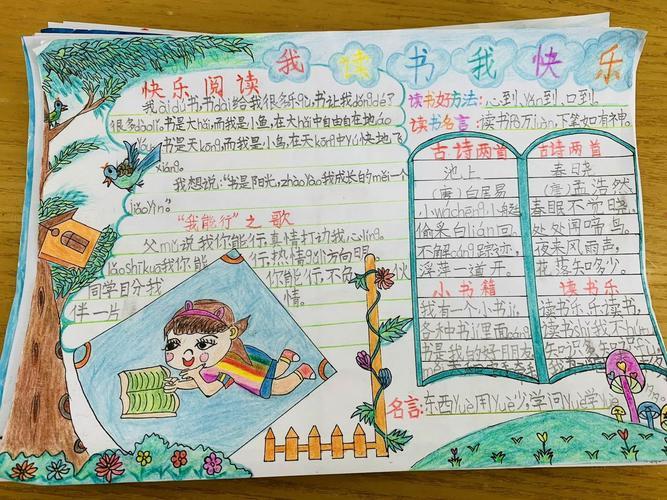 我读书我快乐
快乐阅读
我ài dú书,书dài给我很多乐qù,书让我dǒng dé了
很多dào lǐ。书是大hǎi,而我是小鱼,在大hǎi中自由自在地áo
yóu,书是天kōng,而我是小鸟,在天kōng中yú快地飞
xiáng。
我想说:“书是阳光,zhào yào我成长的měi一个
jiǎo yìn”。
“我能行”之歌
父mǔ说我你能行,真情打动我心líng。
lǎo shī kuā我你能行,热情
你能行,不负
同学自分我
伙
伴一片
情。
读书好方法:心到、yǎn到、口到。
读书名言:读书破万juàn,下笔如有神。
古诗两首
池上
(唐)白居易
小wá chēng小艇,
偷采白lián回。
不解cáng踪迹,
浮萍一道开。
小书籍
我有一个小书
各种书jí里面
书是我的好朋友
古诗两首
春晓
(唐)孟浩然
春眠不觉晓,
处处闻啼鸟。
夜来风雨声,
花落知多少。
读书乐
读书乐,乐读书,
读书shǐ我不
名言:东西yuè用yuè少,学问yuè学yuè多